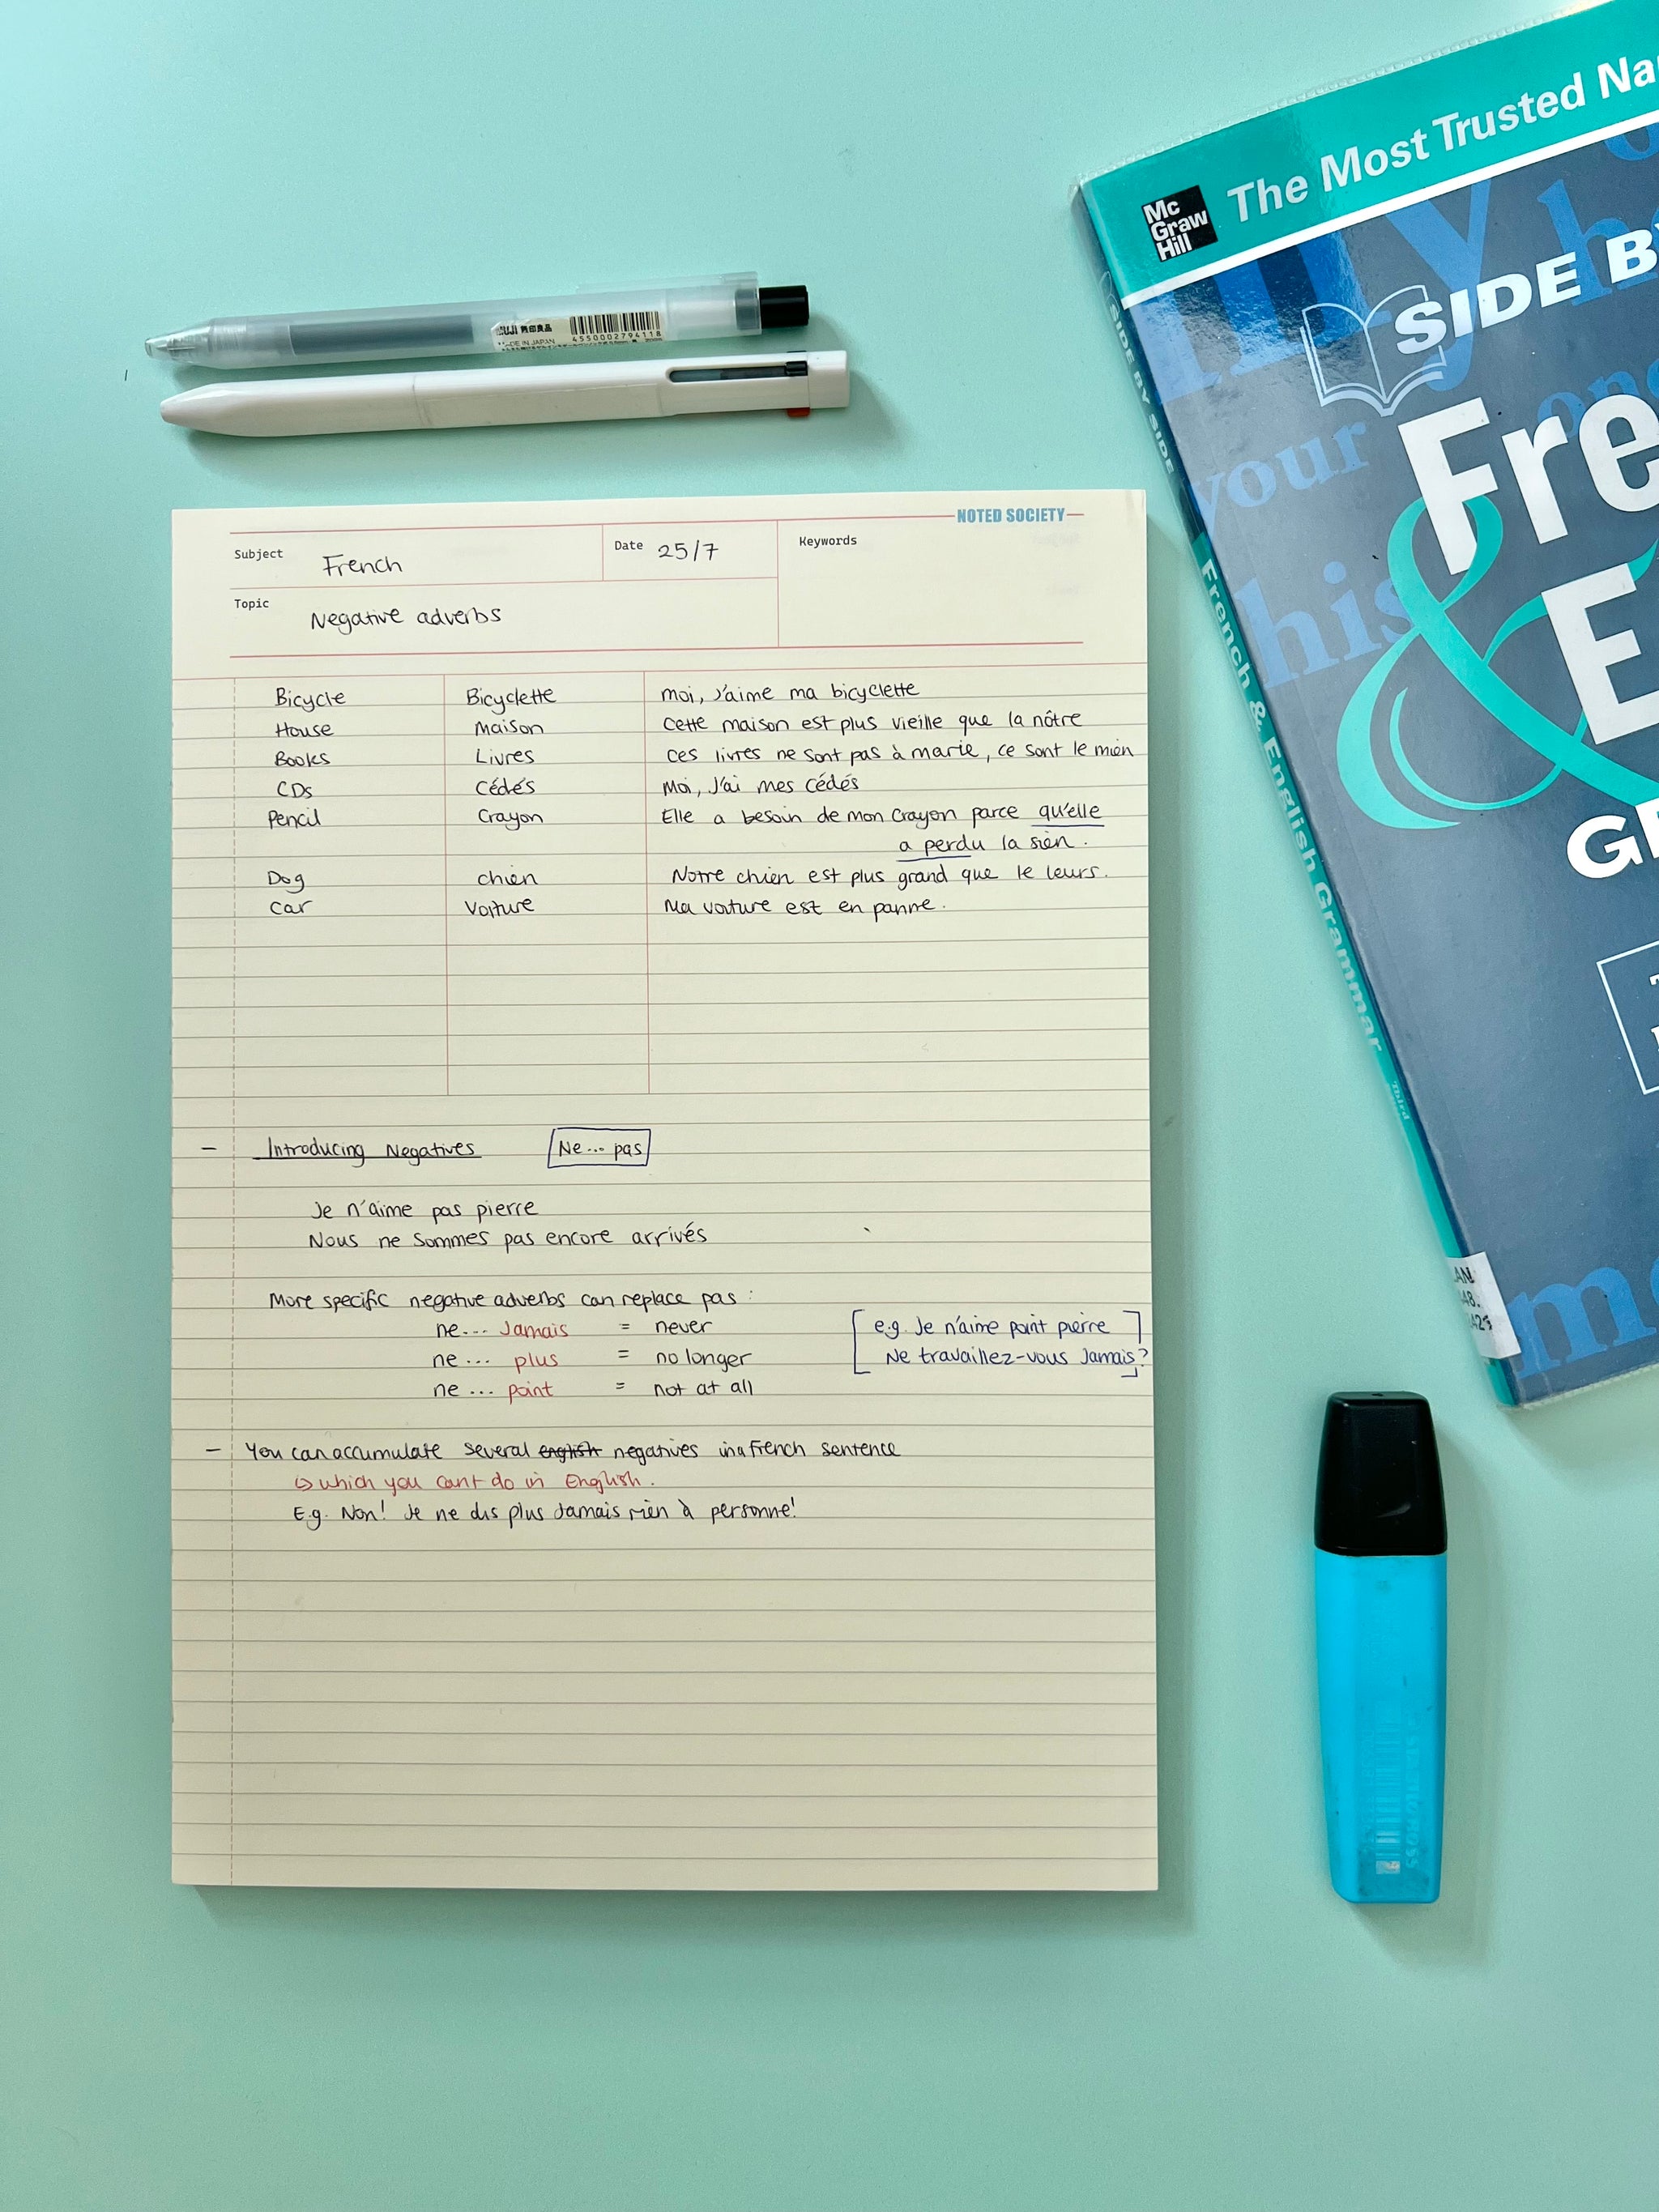 MUJI 無印良品
MADE IN JAPAN
4550002794118
The Most Trusted Na
Mc
Graw
Hill
SIDE BY
Fre
&
E
GR
my
your
one
his
me
SIDE BY SIDE
French & English Grammar
Third
AN
48.
421
NOTED SOCIETY
Subject French
Date 25/7
Keywords
Topic Negative adverbs
Bicycle Bicyclette moi, J'aime ma bicyclette
House Maison Cette maison est plus vieille que la nôtre
Books Livres Ces livres ne sont pas à marie, ce sont le mien
CDs Cédés Moi, J'ai mes cédés
Pencil Crayon Elle a besoin de mon crayon parce qu'elle
a perdu la sien.
Dog chien Notre chien est plus grand que le leurs.
Car Voiture Ma voiture est en panne.
– Introducing Negatives Ne... pas
Je n'aime pas pierre
Nous ne sommes pas encore arrivés
More specific negative adverbs can replace pas:
ne... Jamais = never
ne... plus = no longer
ne... point = not at all
[e.g. Je n'aime point pierre
Ne travaillez-vous Jamais?]
– You can accumulate several english negatives in a French sentence
↳ which you cant do in English.
E.g. Non! Je ne dis plus Jamais rien à personne!